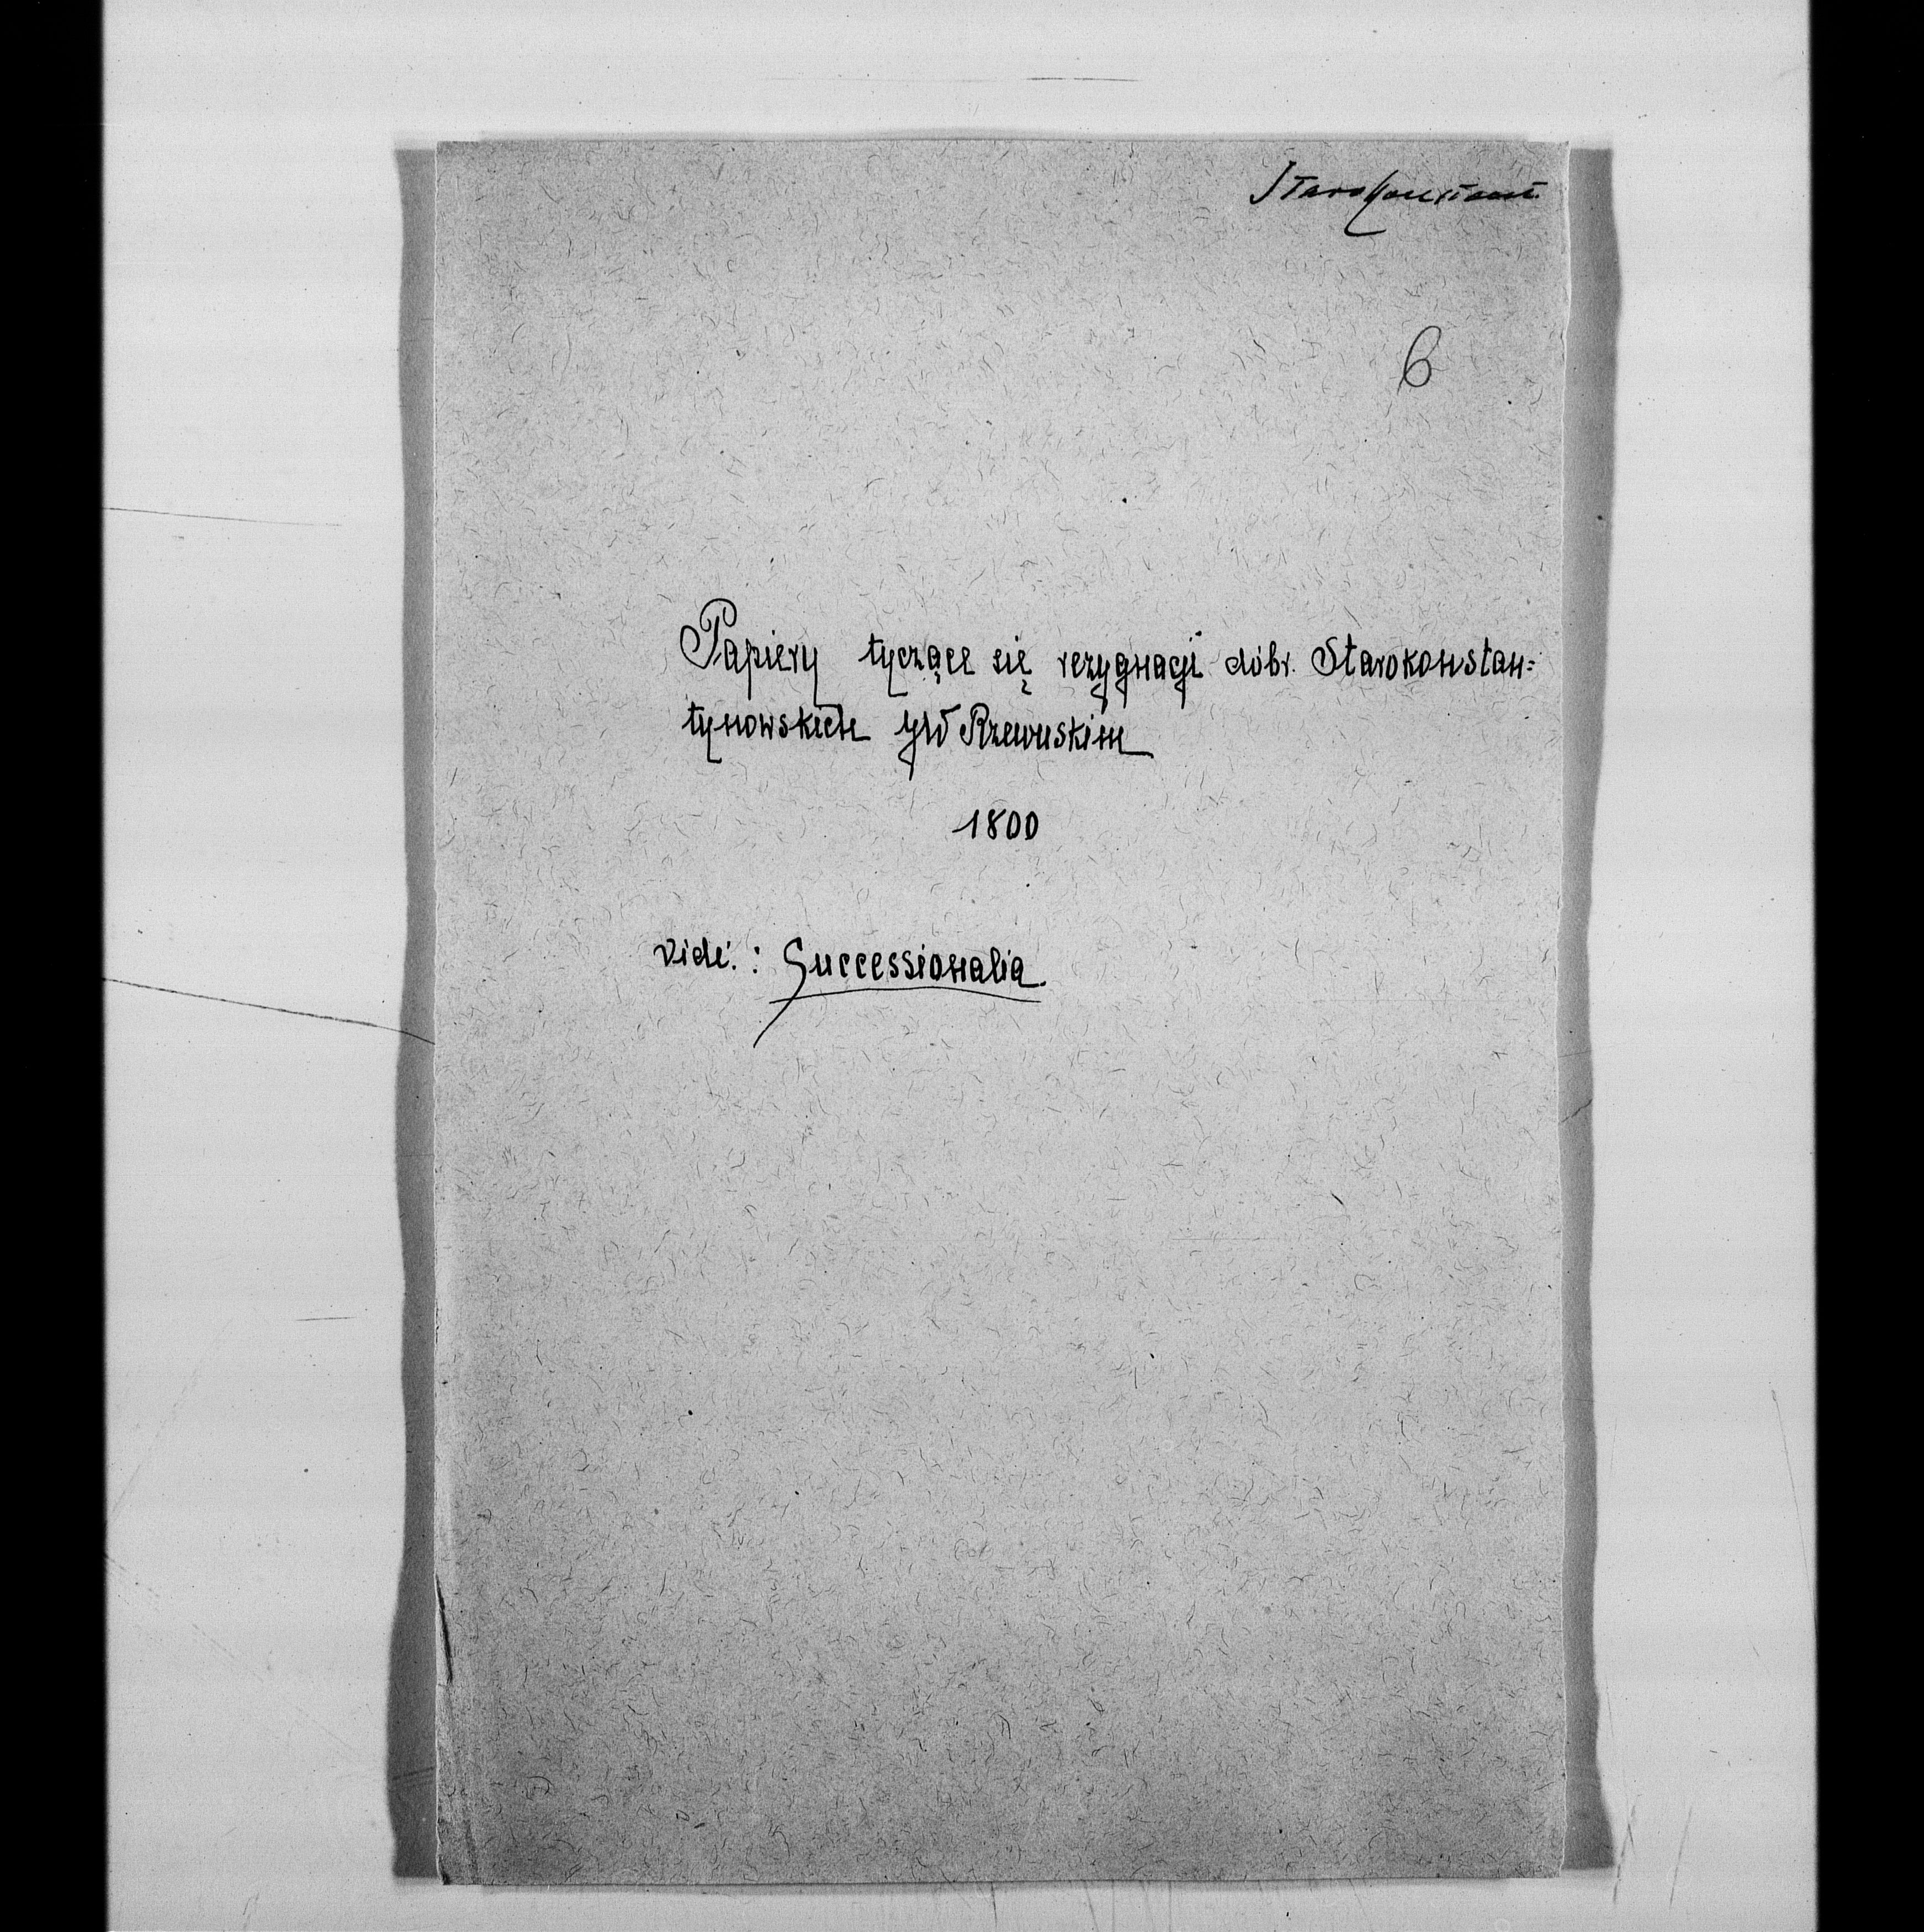 Starokonstant.
6
Papiery tyczące się rezygnacji dóbr. Starokonstan=
tynowskich JW Rzewuskim
1800
vide.: Successionalia.